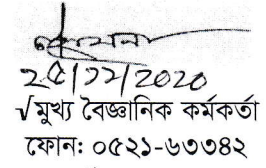 ২৫/১১/২০২০
√মুখ্য বৈজ্ঞানিক কর্মকর্তা
ফোন: ০৫২১-৬৩৩৪২